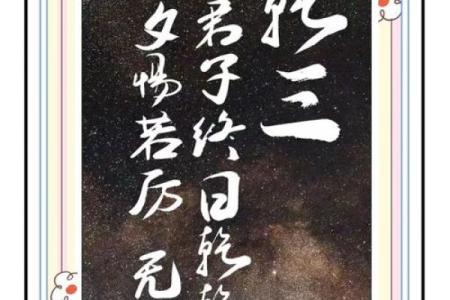 乾三
君子终日乾乾
夕惕若厉 无